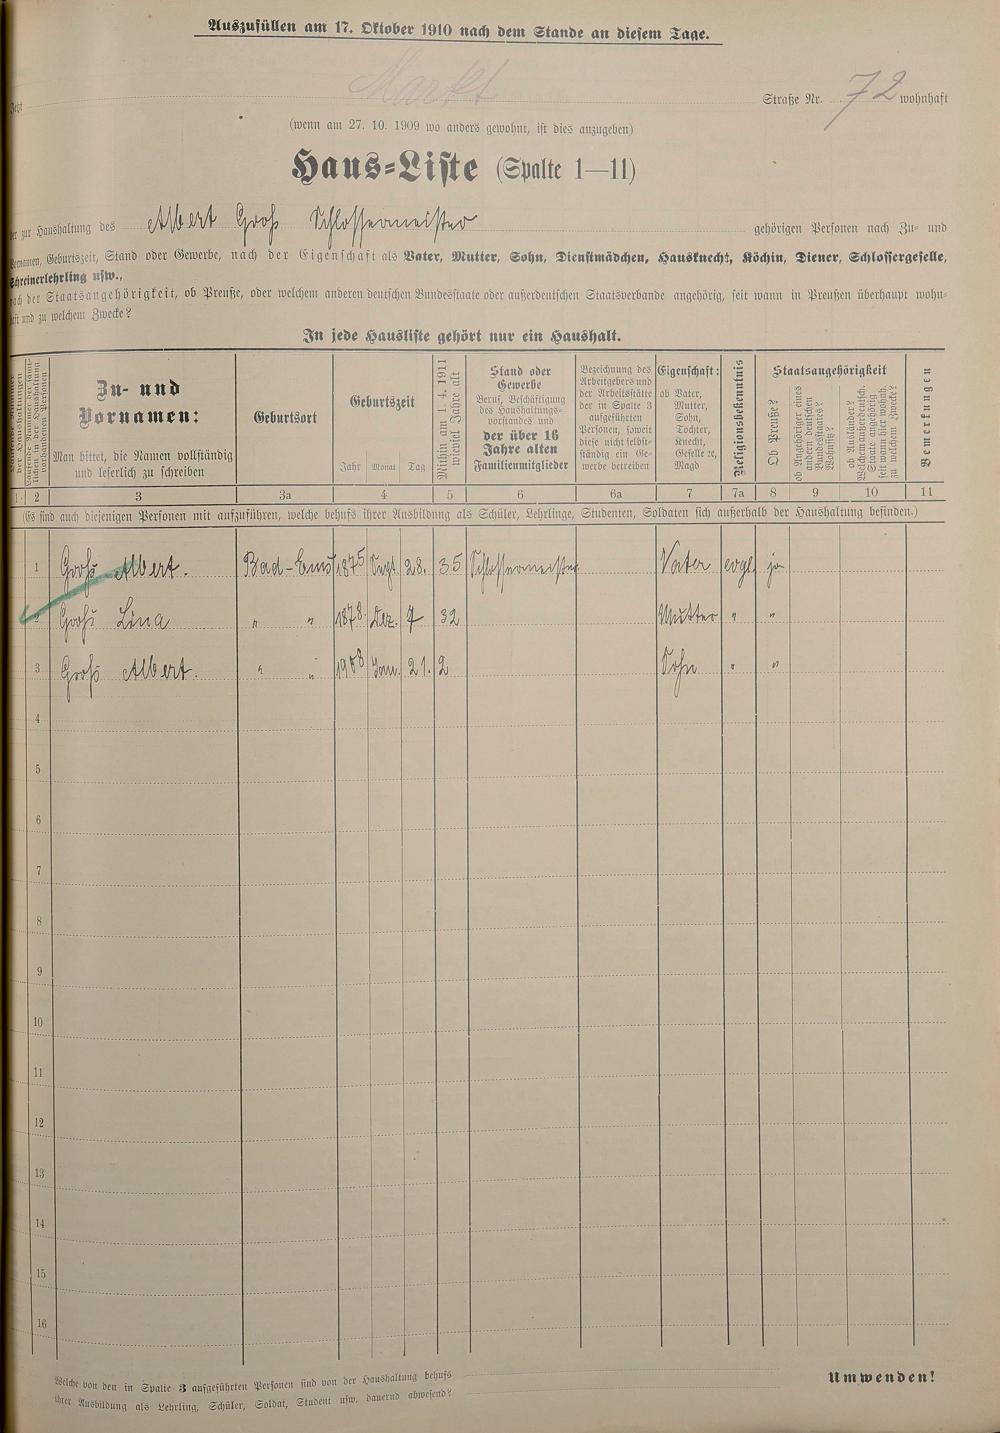 Auszufüllen am 17. Oktober 1910 nach dem Stande an diesem Tage.
Jetzt Markt Straße Nr. 72 wohnhaft
(wenn am 27. 10. 1909 wo anders gewohnt, ist dies anzugeben)
Haus-Liste (Spalte 1—11)
der zur Haushaltung des Albert Groß Schlossermeister gehörigen Personen nach Zu- und
Vornamen, Geburtszeit, Stand oder Gewerbe, nach der Eigenschaft als Vater, Mutter, Sohn, Dienstmädchen, Hausknecht, Köchin, Diener, Schlossergeselle,
Schreinerlehrling usw.,
nach der Staatsangehörigkeit, ob Preuße, oder welchem anderen deutschen Bundesstaate oder außerdeutschen Staatsverbande angehörig, seit wann in Preußen überhaupt wohn-
haft und zu welchem Zwecke?
In jede Hausliste gehört nur ein Haushalt.
Zu- und
Vornamen:
Man bittet, die Namen vollständig
und leserlich zu schreiben
Geburtsort
Geburtszeit
Jahr Monat Tag
Mithin am 1. 4. 1911
wieviel Jahre alt
Stand oder
Gewerbe
Beruf, Beschäftigung
des Haushaltungs-
vorstandes und
der über 16
Jahre alten
Familienmitglieder
Bezeichnung des
Arbeitgebers und
der Arbeitsstätte
der in Spalte 3
aufgeführten
Personen, soweit
diese nicht selbst-
ständig ein Ge-
werbe betreiben
Eigenschaft:
ob Vater,
Mutter,
Sohn,
Tochter,
Knecht,
Geselle ꝛc,
Magd
Religionsbekenntnis
Staatsangehörigkeit
Ob Preuße?
ob Angehöriger eines
andern deutschen
Bundesstaates?
Wohnsitz?
ob Ausländer?
Welchem außerdeutsch.
Staate angehörig
seit wann hier wohnh.
zu welchem Zwecke?
Bemerkungen
1 2 3 3a 4 5 6 6a 7 7a 8 9 10 11
(Es sind auch diejenigen Personen mit aufzuführen, welche behufs ihrer Ausbildung als Schüler, Lehrlinge, Studenten, Soldaten sich außerhalb der Haushaltung befinden.)
1 Groß Albert. Bad-Ems 1875 Sept. 28. 35 Schlossermeister Vater evgl. ja
2 Groß Lina " " 1878 Dez. 7 32 Mutter " "
3 Groß Albert. " " 1908 Jan. 21. 2 Sohn " "
4
5
6
7
8
9
10
11
12
13
14
15
16
Welche von den in Spalte 3 aufgeführten Personen sind von der Haushaltung behufs
ihrer Ausbildung als Lehrling, Schüler, Soldat, Student usw. dauernd abwesend?
Umwenden!